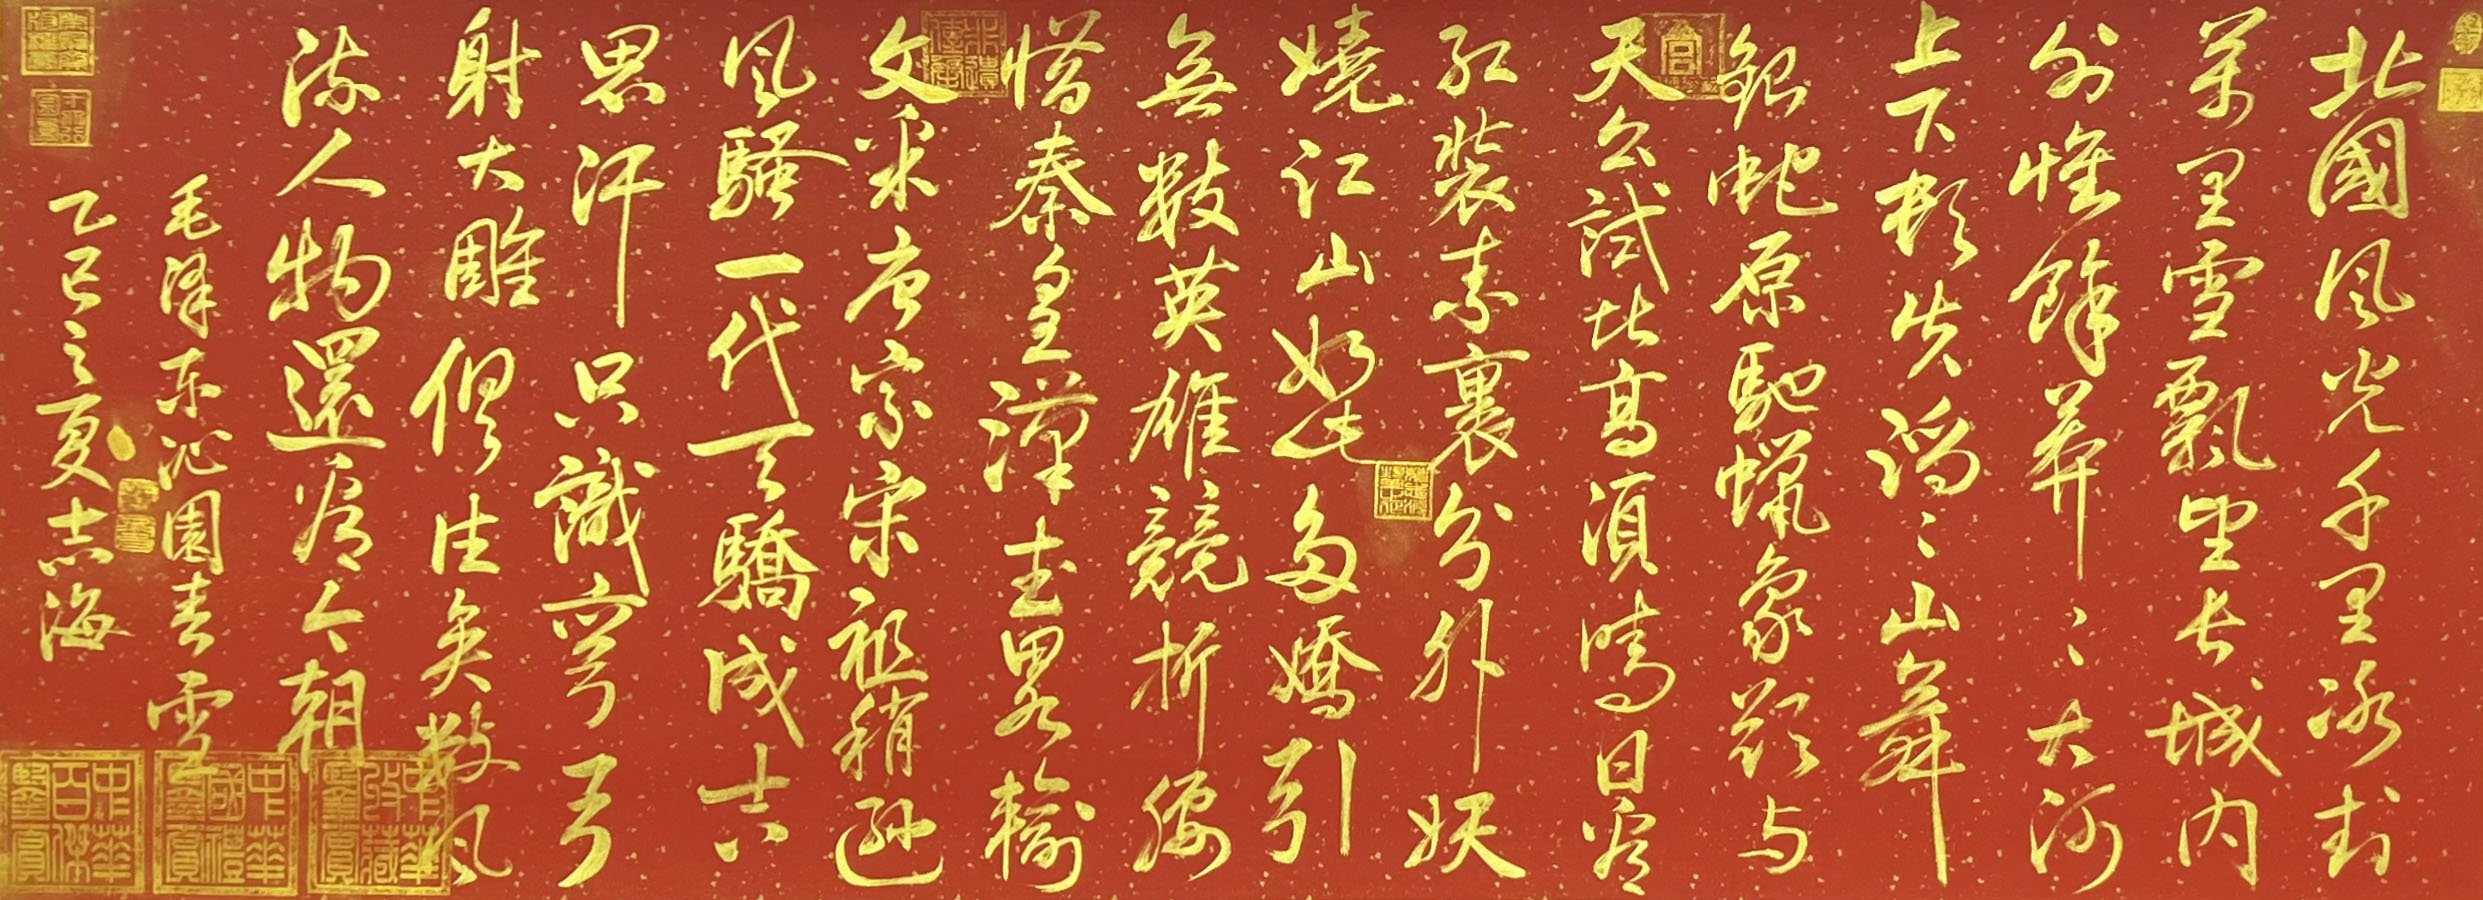 北國風光千里冰封
萬里雪飄望長城內
外惟餘莽〻大河
上下頓失滔〻山舞
銀蛇原馳蠟象欲與
天公試比高須晴日看
紅裝素裹分外妖
嬈江山如此多嬌引
無數英雄競折腰
惜秦皇漢武畧輸
文采唐宗宋祖稍遜
風騷一代天驕成吉
思汗只識彎弓
射大雕俱往矣數風
流人物還看今朝
毛澤東沁園春雪
乙巳之夏志海
中華收藏鑒賞
中華國禮鑒賞
中華百傑鑒賞